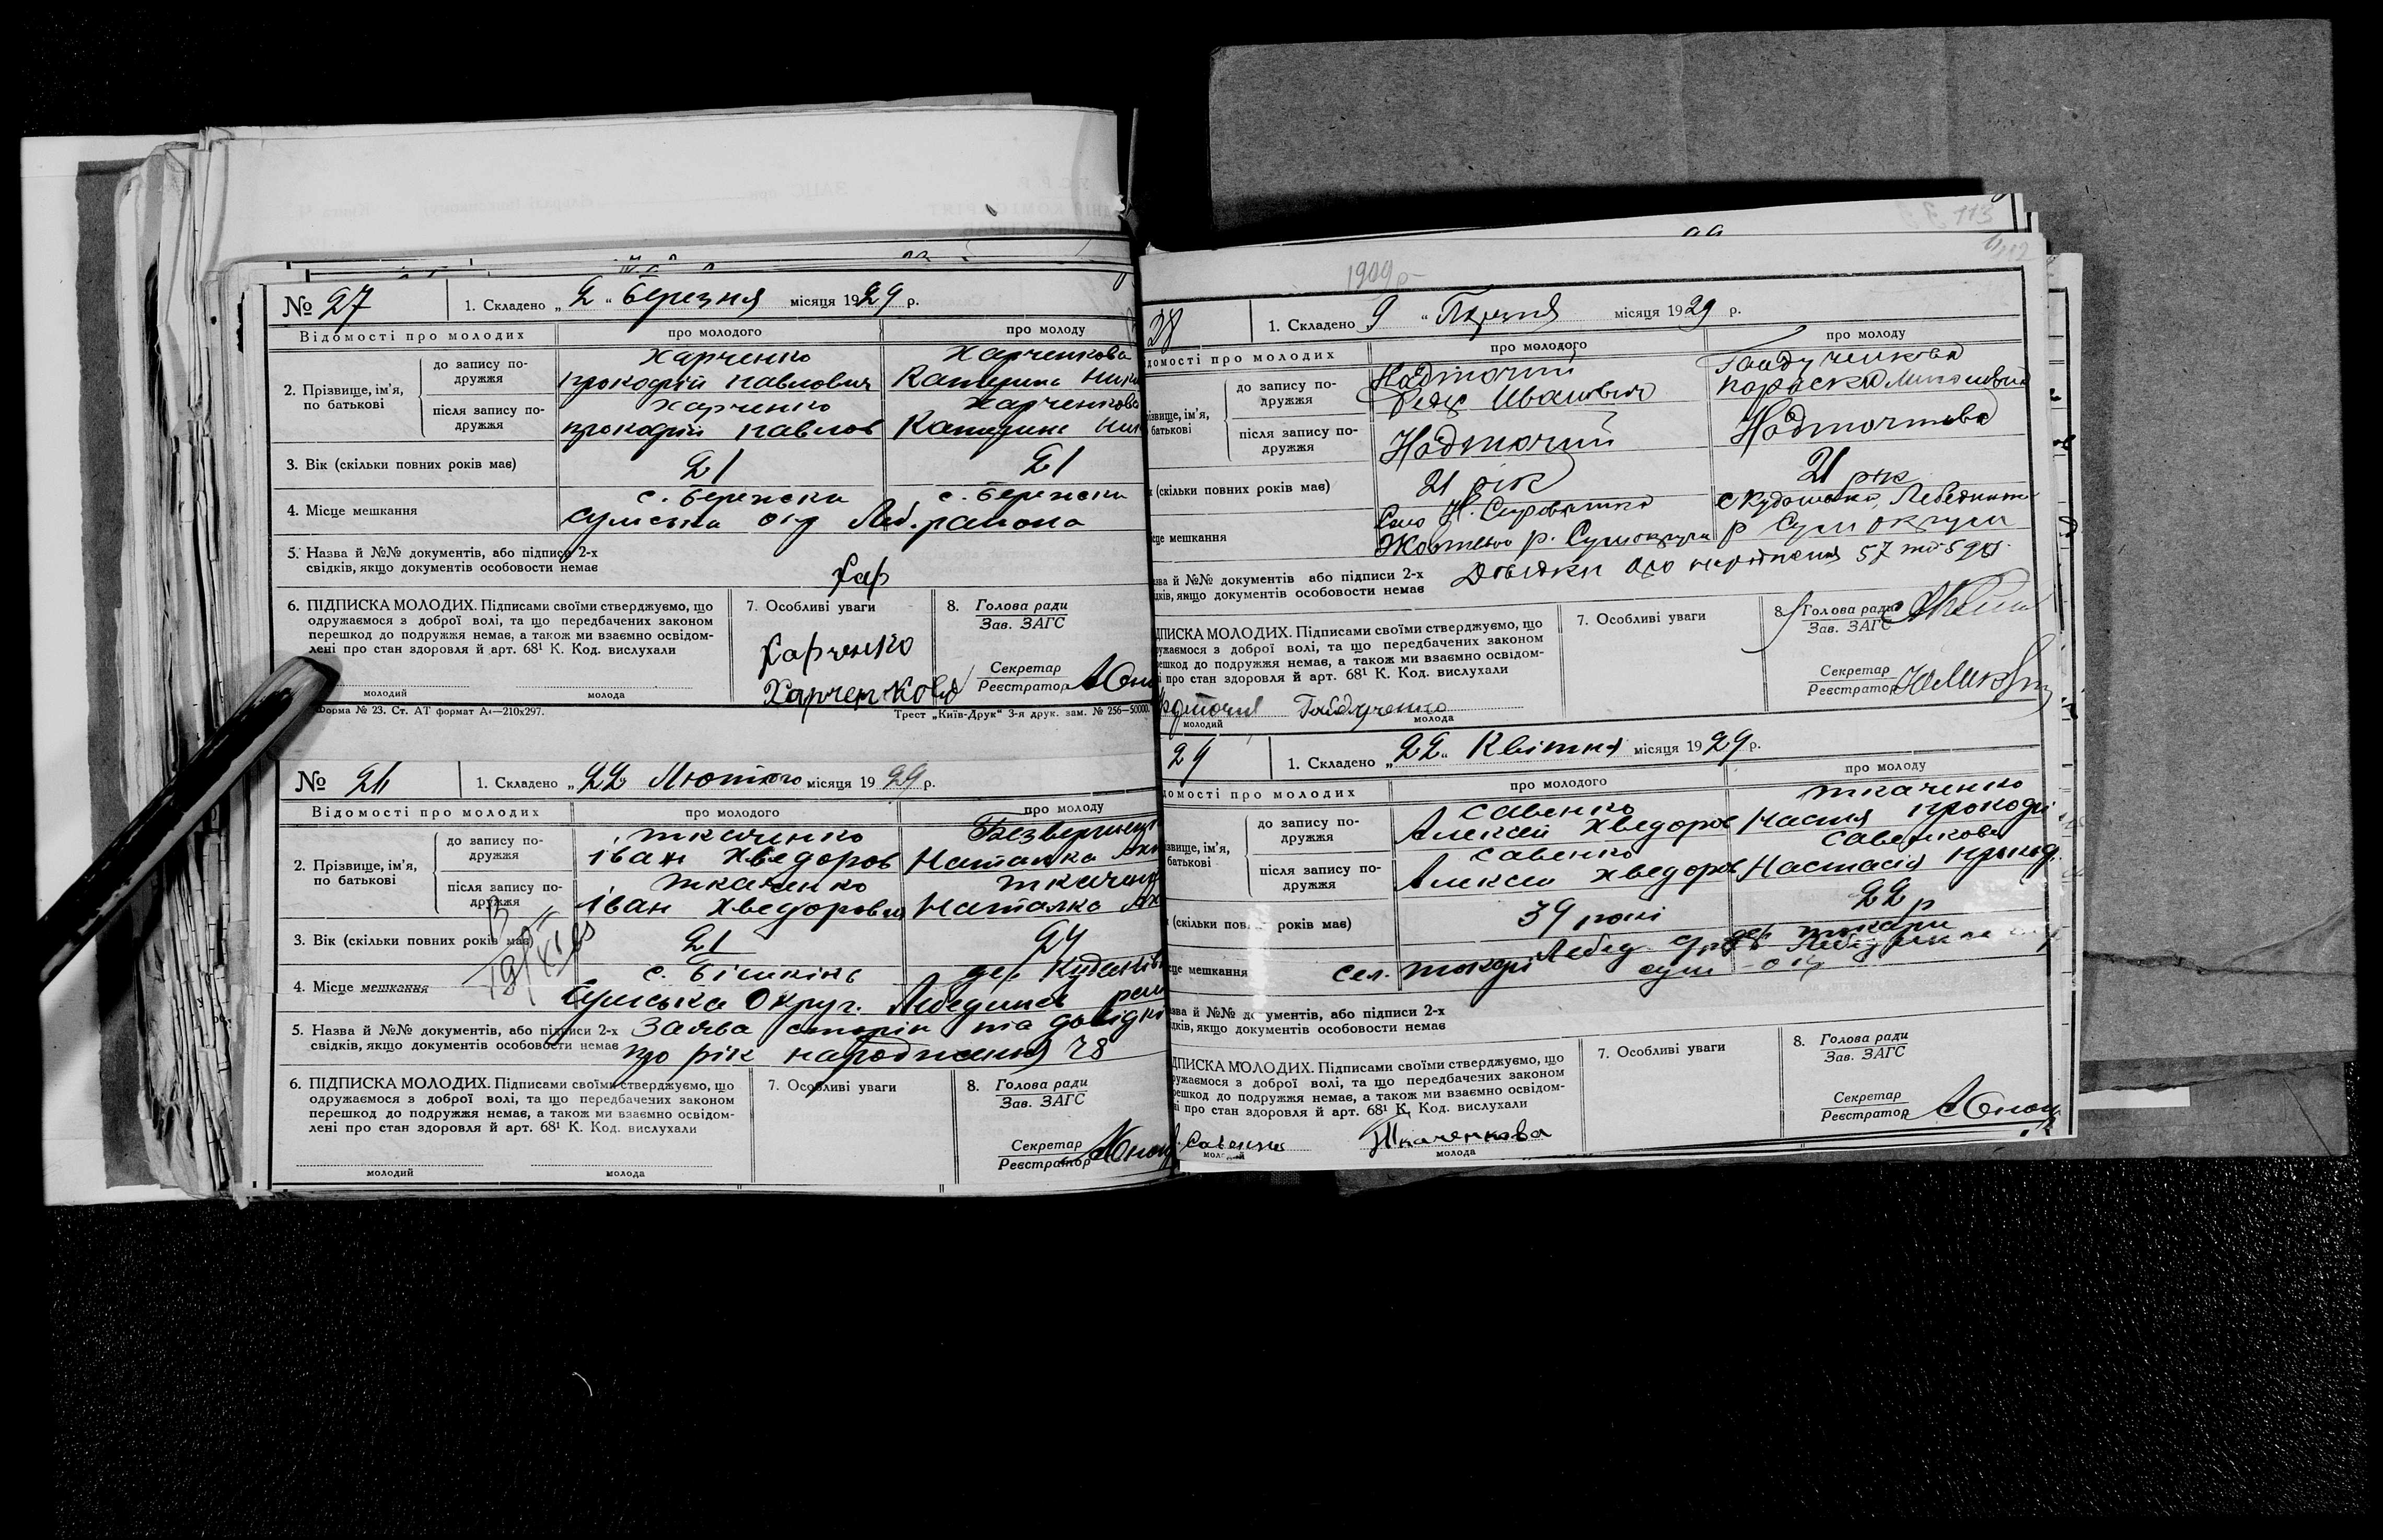 № 27
1. Складено „ 2 " Березня місяця 1929 р.
Відомості про молодих
про молодого
про молоду
2. Прізвище, ім'я, по батькові
до запису по-
дружжя
Харченко
Харченкова
прокофій павлович
Катерина
після запису по-
дружжя
Харченко
Харченкова
прокофій павлов
Катерина
3. Вік (скільки повних років має)
21
21
4. Місце мешкання
с. Бережски
с. Бережски
Сумська окр Леб. района
5. Назва й №№ документів, або підписи 2-х
свідків, якщо документів особовости немає
Хар
6. ПІДПИСКА МОЛОДИХ. Підписами своїми стверджуємо, що
одружаємося з доброї волі, та що передбачених законом
перешкод до подружжя немає, а також ми взаємно освідом-
лені про стан здоровля й арт. 68¹ К. Код. вислухали
молодий
молода
7. Особливі уваги
Харченко
Харченкова
8. Голова ради
Зав. ЗАГС
Секретар
Реєстратор
Форма № 23. Ст. АТ формат А4—210х297.
Трест „Київ-Друк" 3-я друк. зам. № 256—50000.
№ 26
1. Складено „ 22 Лютого місяця 1929 р.
Відомості про молодих
про молодого
про молоду
2. Прізвище, ім'я,
по батькові
до запису по-
дружжя
ткаченко
іван Хведоров
Наталка
після запису по-
дружжя
ткаченко
іван Хведорович
Наталка
3. Вік (скільки повних років має)
21
24
4. Місце мешкання
с. Бішкінь
Сумська Округ.
5. Назва й №№ документів, або підписи 2-х
свідків, якщо документів особовости немає
Заява сторін та довідки
про рік народження 28
6. ПІДПИСКА МОЛОДИХ. Підписами своїми стверджуємо, що
одружаємося з доброї волі, та що передбачених законом
перешкод до подружжя немає, а також ми взаємно освідом-
лені про стан здоровля й арт. 68¹ К. Код. вислухали
молодий
молода
7. Особливі уваги
8. Голова ради
Зав. ЗАГС
Секретар
Реєстратор
113
112
1909 р
28
1. Складено 9 " місяця 1929 р.
домості про молодих
про молодого
про молоду
ізвище, ім'я,
батькові
до запису по-
дружжя
Надточий
Иванович
Параска
після запису по-
дружжя
Надточий
Надточиева
(скільки повних років має)
21 рік
21 рік
сце мешкання
Село Н. Сироватка
Жовтнево р. Сум округи
р Сум округи
зва й №№ документів або підписи 2-х
дків, якщо документів особовости немає
Довідки про народження 57 та 59
ДПИСКА МОЛОДИХ. Підписами своїми стверджуємо, що
ружаємося з доброї волі, та що передбачених законом
решкод до подружжя немає, а також ми взаємно освідом-
і про стан здоровля й арт. 68¹ К. Код. вислухали
молодий
молода
7. Особливі уваги
8. Голова ради
Зав. ЗАГС
Секретар
Реєстратор
29
1. Складено „ 22 " Квітня місяця 1929 р.
домості про молодих
про молодого
про молоду
ізвище, ім'я,
батькові
до запису по-
дружжя
Савенко
ткаченко
Алексей Хведоров
Настя прокофі
після запису по-
дружжя
Савенко
Савенкова
Алексей Хведоров
Настасія прокоф.
(скільки повних років має)
39 рокі
22 р
сце мешкання
сел. токарі Лебед
сум - окр
зва й №№ документів, або підписи 2-х
дків, якщо документів особовости немає
ДПИСКА МОЛОДИХ. Підписами своїми стверджуємо, що
ружаємося з доброї волі, та що передбачених законом
решкод до подружжя немає, а також ми взаємно освідом-
і про стан здоровля й арт. 68¹ К. Код. вислухали
Савенко
Ткаченкова
молодий
молода
7. Особливі уваги
8. Голова ради
Зав. ЗАГС
Секретар
Реєстратор